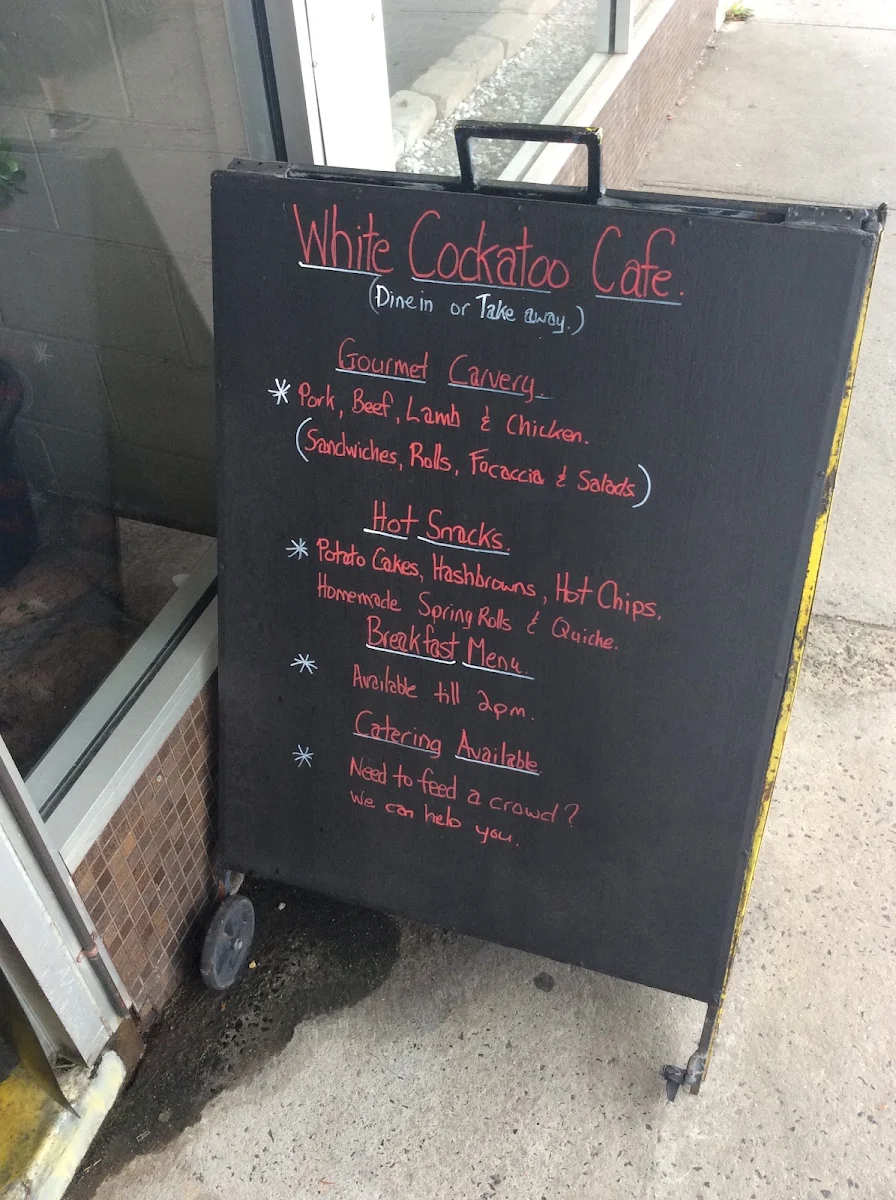 White Cockatoo Cafe.
(Dine in or Take away.)
Gourmet Carvery.
* Pork, Beef, Lamb & Chicken.
(Sandwiches, Rolls, Focaccia & Salads)
Hot Snacks.
* Potato Cakes, Hashbrowns, Hot Chips,
Homemade Spring Rolls & Quiche.
Breakfast Menu.
* Available till 2pm.
Catering Available.
* Need to feed a crowd?
we can help you.